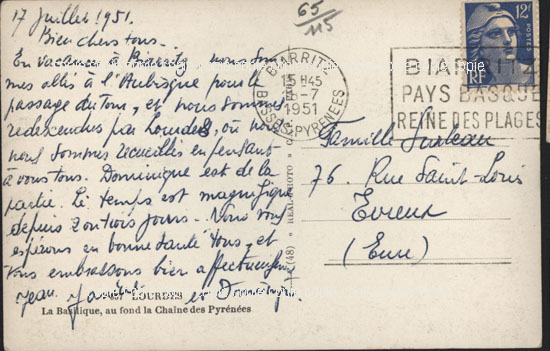 17 Juillet 1951.
65/115
Bien chers tous.
En vacances à Biarritz nous som
mes allés à l'Aubisque pour le
passage du tour, et nous sommes
redescendus par Lourdes, où nous
nous sommes recueillis en pensant
à vous tous. Dominique est de la
partie. Le temps est magnifique
depuis 2 ou trois jours. Nous vous
espérons en bonne santé tous, et
vous embrassons bien affectueusement
Jean et Dominique.
LOURDES
La Basilique, au fond la Chaîne des Pyrénées
(48) REAL-PHOTO
12F
POSTES
RF
BIARRITZ
15H45
-7
1951
BASSES PYRÉNÉES
BIARRITZ
PAYS BASQUE
REINE DES PLAGES
Famille
76. Rue Saint-Louis
Evreux
(Eure)